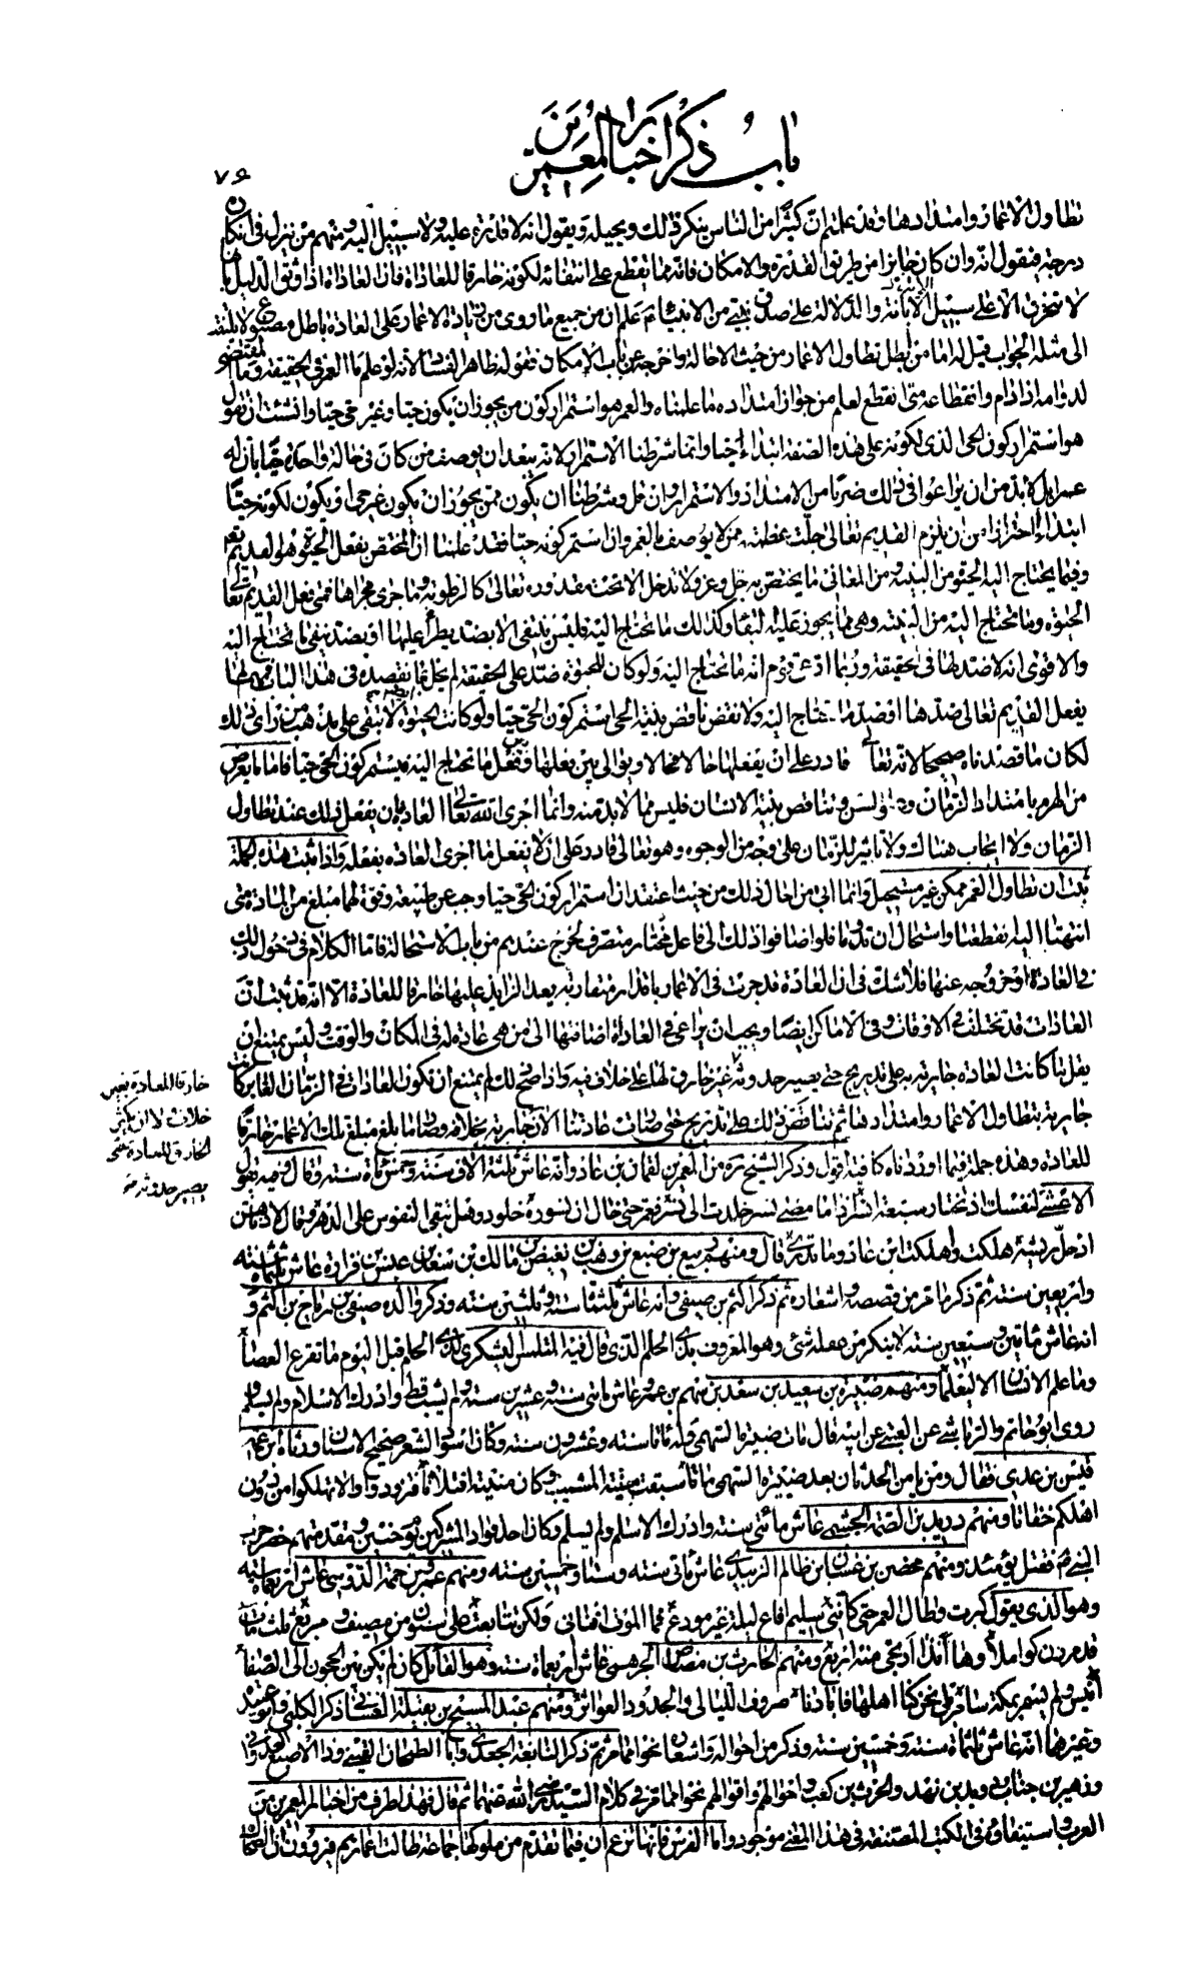 باب ذكر اخبار المعمرين
٧٦
تطاول الاعمار وامتدادها وقد علمتم ان كثيرا من الناس ينكر ذلك ويحيله ويقول انه لا قدرة عليه ولا سبيل اليه ومنهم من ينزل في انكاره
درجة فيقول انه وان كان جايزا من طريق القدرة والامكان فانه مما يقطع على انتفائه لكونه خارقا للعادة فان العادة اذا وثق الدليل بانها
لا تنخرق الا على سبيل الابانة والدلالة على صدق نبي من الانبياء علم ان جميع ما روي من زيادة الاعمار على العادة باطل مصنوع لا يلتفت
الى مثله الجواب قيل له اما من ابطل تطاول الاعمار من حيث الاحالة واخرجه عن باب الامكان فقوله ظاهر الفساد لانه لو علم ما العمر في الحقيقة وما المقتضي
لدوامه اذا دام وانقطاعه متى انقطع لعلم من جواز امتداده ما علمناه والعمر هو استمرار كون من يجوز ان يكون حيا وغير حي حيا وان شئت ان تقول
هو استمرار كون الحي الذي لكونه على هذه الصفة ابتداء حيا وانما شرطنا الاستمرار لانه يبعد ان يوصف من كان في حالة واحدة حيا بان له
عمرا بل لا بد من ان يراعوا في ذلك ضربا من الامتداد والاستمرار وان قل وشرطنا ان يكون ممن يجوز ان يكون غير حي او يكون لكونه حيا
ابتداء احترازا من ان يلزم القديم تعالى جلت عظمته ممن لا يوصف بالعمر وان استمر كونه حيا فقد علمنا ان المختص بفعل الحيوة هو القديم تعالى
وفيما يحتاج اليه الحيوة من البنية ومن المعاني ما يختص به جل وعز ولا تدخل الا تحت مقدوره تعالى كالرطوبة وما جرى مجراها فمتى فعل القديم تعالى
الحيوة وما تحتاج اليه من البنية وهي مما يجوز عليه البقاء وكذلك ما تحتاج اليه فليس ينتفي الا بضد يطرأ عليها او بضد ينفي ما تحتاج اليه
والاقوى انه لا ضد لها في الحقيقة وربما ادعى قوم انه ما تحتاج اليه ولو كان للحيوة ضد على الحقيقة لم يخل بما نقصده في هذا الباب فمهما لم
يفعل القديم تعالى ضدها او ضد ما تحتاج اليه ولا نقض ناقض بنية الحي استمر كون الحي حيا ولو كانت الحيوة لا تبقى على مذهب من راى ذلك
لكان ما قصدناه صحيحا لانه تعالى قادر على ان يفعلها حالا فحالا ويوالي بين فعلها وفعل ما تحتاج اليه فيستمر كون الحي حيا فاما ما يعرض
من الهرم بامتداد الزمان وعلو السن وتناقص بنية الانسان فليس مما لا بد منه وانما اجرى الله تعالى العادة بان يفعل ذلك عند تطاول
الزمان ولا ايجاب هناك ولا تاثير للزمان على وجه من الوجوه وهو تعالى قادر على ان لا يفعل ما اجرى العادة بفعله واذا ثبت هذه الجملة
ثبت ان تطاول العمر ممكن غير مستحيل وانما اتي من احال ذلك من حيث اعتقد ان استمرار كون الحي حيا وجب عن طبيعة وقوة لهما مبلغ من المادة متى
انتهتا اليه انقطعتا واستحال ان تدوما فلو اضافوا ذلك الى فاعل مختار متصرف لخرج عندهم من باب الاستحالة فاما الكلام في دخول ذلك
في العادة او خروجه عنها فلا شك في ان العادة قد جرت في الاعمار باقدار متقاربة يعد الزايد عليها خارقا للعادة الا انه قد ثبت ان
العادات قد تختلف في الاوقات وفي الاماكن ايضا ويجب ان يراعى في العادات اضافتها الى من هي عادة له في المكان والوقت وليس يمتنع ان
يقل ما كانت العادة جارية به على تدريج حتى يصير حدوثه غير خارق لها على خلاف فيه واذا صح ذلك لم يمتنع ان تكون العادات في الزمان الغابر كانت
جارية بتطاول الاعمار وامتدادها ثم تناقص ذلك على تدريج حتى صارت عادتنا الان جارية بخلافه وصار ما بلغ مبلغ تلك الاعمار خارقا
للعادة وهذه جملة فيما اوردناه كافية اقول وذكر الشيخ ره من المعمرين لقمان بن عاد وانه عاش ثلثة الاف سنة وخمسمأة سنة وقال وفيه يقول
الاعشى لنفسك اذ تختار سبعة انسر اذا ما مضى نسر خلدت الى نسر فعمر حتى خال ان نسوره خلود وهل تبقى النفوس على الدهر وقال لادناهن
اذ حل ريشه هلكت واهلكت ابن عاد وما تدري قال ومنهم ربيع بن ضبع بن وهب بن بغيض بن مالك بن سعد بن عبس بن فزارة عاش ثلثمأة سنة
واربعين سنة ثم ذكر ما مر من قصصه واشعاره ثم ذكر اكثم بن صيفي وانه عاش ثلثمأة سنة وثلثين سنة وذكر والده صيفي بن رباح بن اكثم و
انه عاش مأتين وسبعين سنة لا ينكر من عقله شئ وهو المعروف بذي الحلم الذي قال فيه المتلمس اليشكري لذي الحلم قبل اليوم ما تقرع العصا
وما علم الانسان الا ليعلما ومنهم ضبيرة بن سعيد بن سعد بن سهم بن عمرو عاش مأتي سنة وعشرين سنة ولم يشب قط وادرك الاسلام ولم يسلم
روى ابو حاتم والرياشي عن العتبي عن ابيه قال مات ضبيرة السهمي وله مأتا سنة وعشرون سنة وكان اسود الشعر صحيح الاسنان ورثاه ابن عمه
قيس بن عدي فقال ومن يامن الحدثان بعد ضبيرة السهمي ماتا سبقت منيته المشيب وكان منيته افتلاتا فتزودوا لا تهلكوا من دون
اهلكم خفاتا ومنهم دريد بن الصمة الجشمي عاش مأتي سنة وادرك الاسلام ولم يسلم وكان احد قواد المشركين يوم حنين ومقدمتهم حضر حرب
النبي ص فقتل يومئذ ومنهم محصن بن غسان بن ظالم الزبيدي عاش مأتي سنة وستا وخمسين سنة ومنهم عمرو بن حممة الدوسي عاش اربعمأة سنة
وهو الذي يقول كبرت وطال العمر حتى كانني سليم افاع ليله غير مودع فما الموت افناني ولكن تتابعت علي سنون من مصيف ومربع ثلث مئات
قد مررن كواملا وها انا هذا ارتجي منه اربع ومنهم الحارث بن مضاض الجرهمي عاش اربعمأة سنة وهو القائل كان لم يكن بين الحجون الى الصفا
انيس ولم يسمر بمكة سامر بلى نحن كنا اهلها فابادنا صروف الليالي والجدود العواثر ومنهم عبد المسيح بن بقيلة الغساني ذكر الكلبي وابو عبيدة
وغيرهما انه عاش ثلثمأة سنة وخمسين سنة وذكر من احواله واشعاره نحوا مما مر ثم ذكر النابغة الجعدي وابا الطمحان القيني وذا الاصبع العدواني
وزهير بن جناب ودويد بن نهد والحرث بن كعب واحوالهم واقوالهم نحوا مما مر في كلام السيد رضي الله عنهما ثم قال فهذا طرف من اخبار المعمرين من
العرب واستيفاؤه في الكتب المصنفة في هذا المعنى موجود واما الفرس فانها تزعم ان فيما تقدم من ملوكها جماعة طالت اعمارهم فيروون ان الضحاك
خارقا للعادة بغير
خلاف ولا ان يكثر
الخارق للعادة حتى
يصير حدوثه